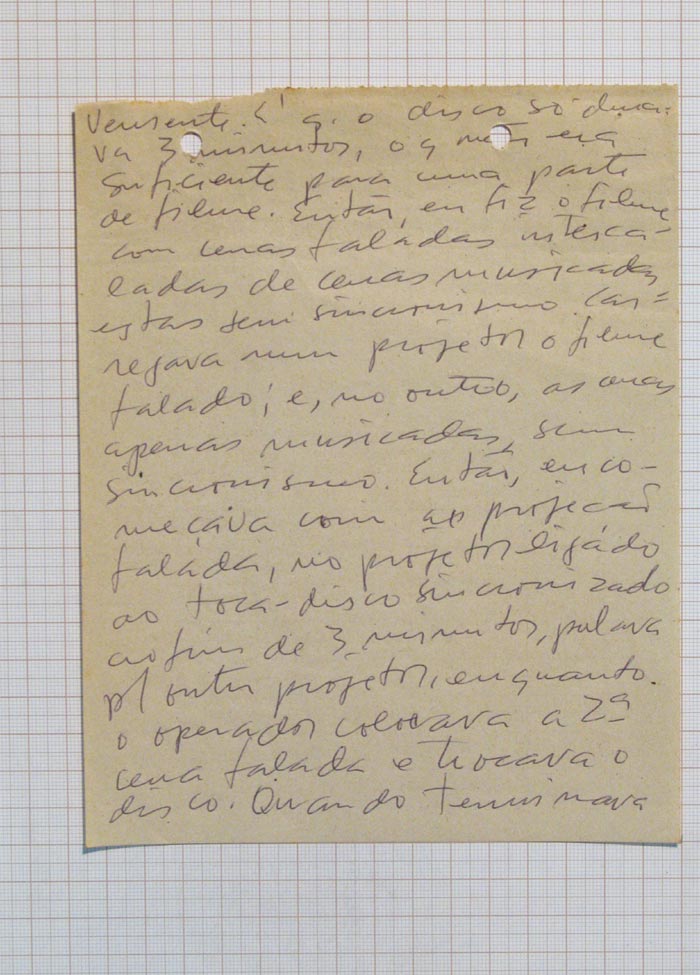 É q. o disco só dura-
va 3 minutos, o q não era
suficiente para uma parte
de filme. Então, eu fiz o filme
com cenas faladas interca-
ladas de cenas musicadas
estas sem sincronismo. Car=
regava num projetor o filme
falado; e, no outro, as cenas
apenas musicadas, sem
sincronismo. Então, eu co-
meçava com a projeção
falada, no projetor ligado
ao toca-disco sincronizado
ao fim de 3 minutos, pulava
p/ outro projetor, enquanto.
o operador colocava a 2ª
cena falada e trocava o
disco. Quando terminava